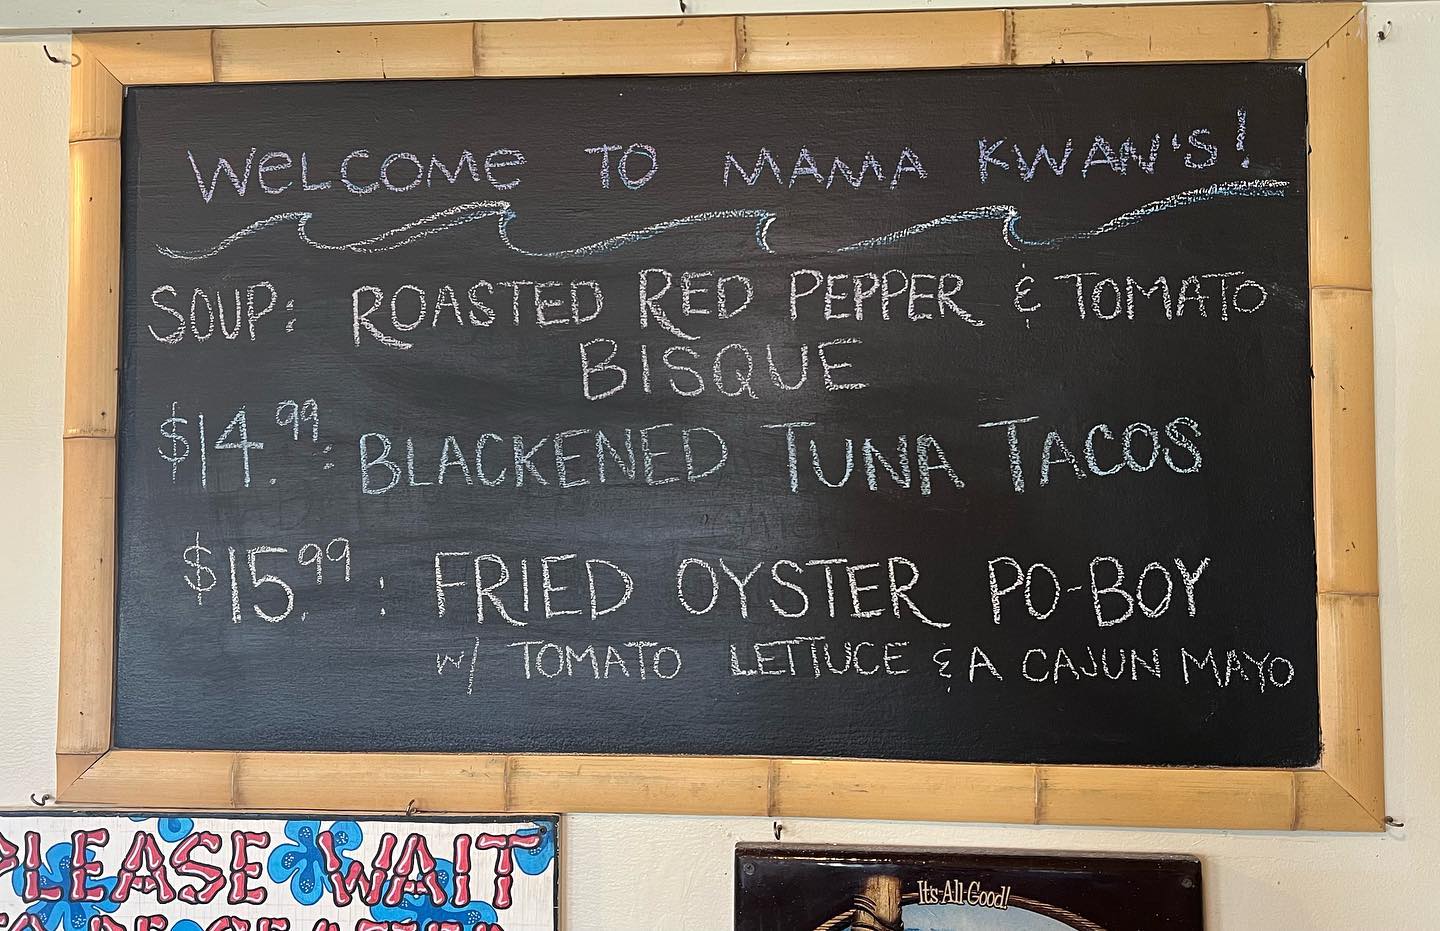 WELCOME TO MAMA KWAN'S!
SOUP: ROASTED RED PEPPER & TOMATO
BISQUE
$14.99: BLACKENED TUNA TACOS
$15.99: FRIED OYSTER PO-BOY
W/ TOMATO LETTUCE & A CAJUN MAYO
PLEASE WAIT
TO BE SEATED
It's All Good!